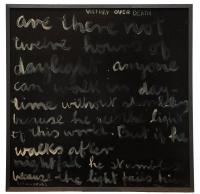 VICTORY OVER DEATH
are there not
twelve hours of
daylight anyone
can walk in day-
time without stumbling
because he sees the light
of this world. But if he
walks after
nightfall he stumbles
because the light fails him